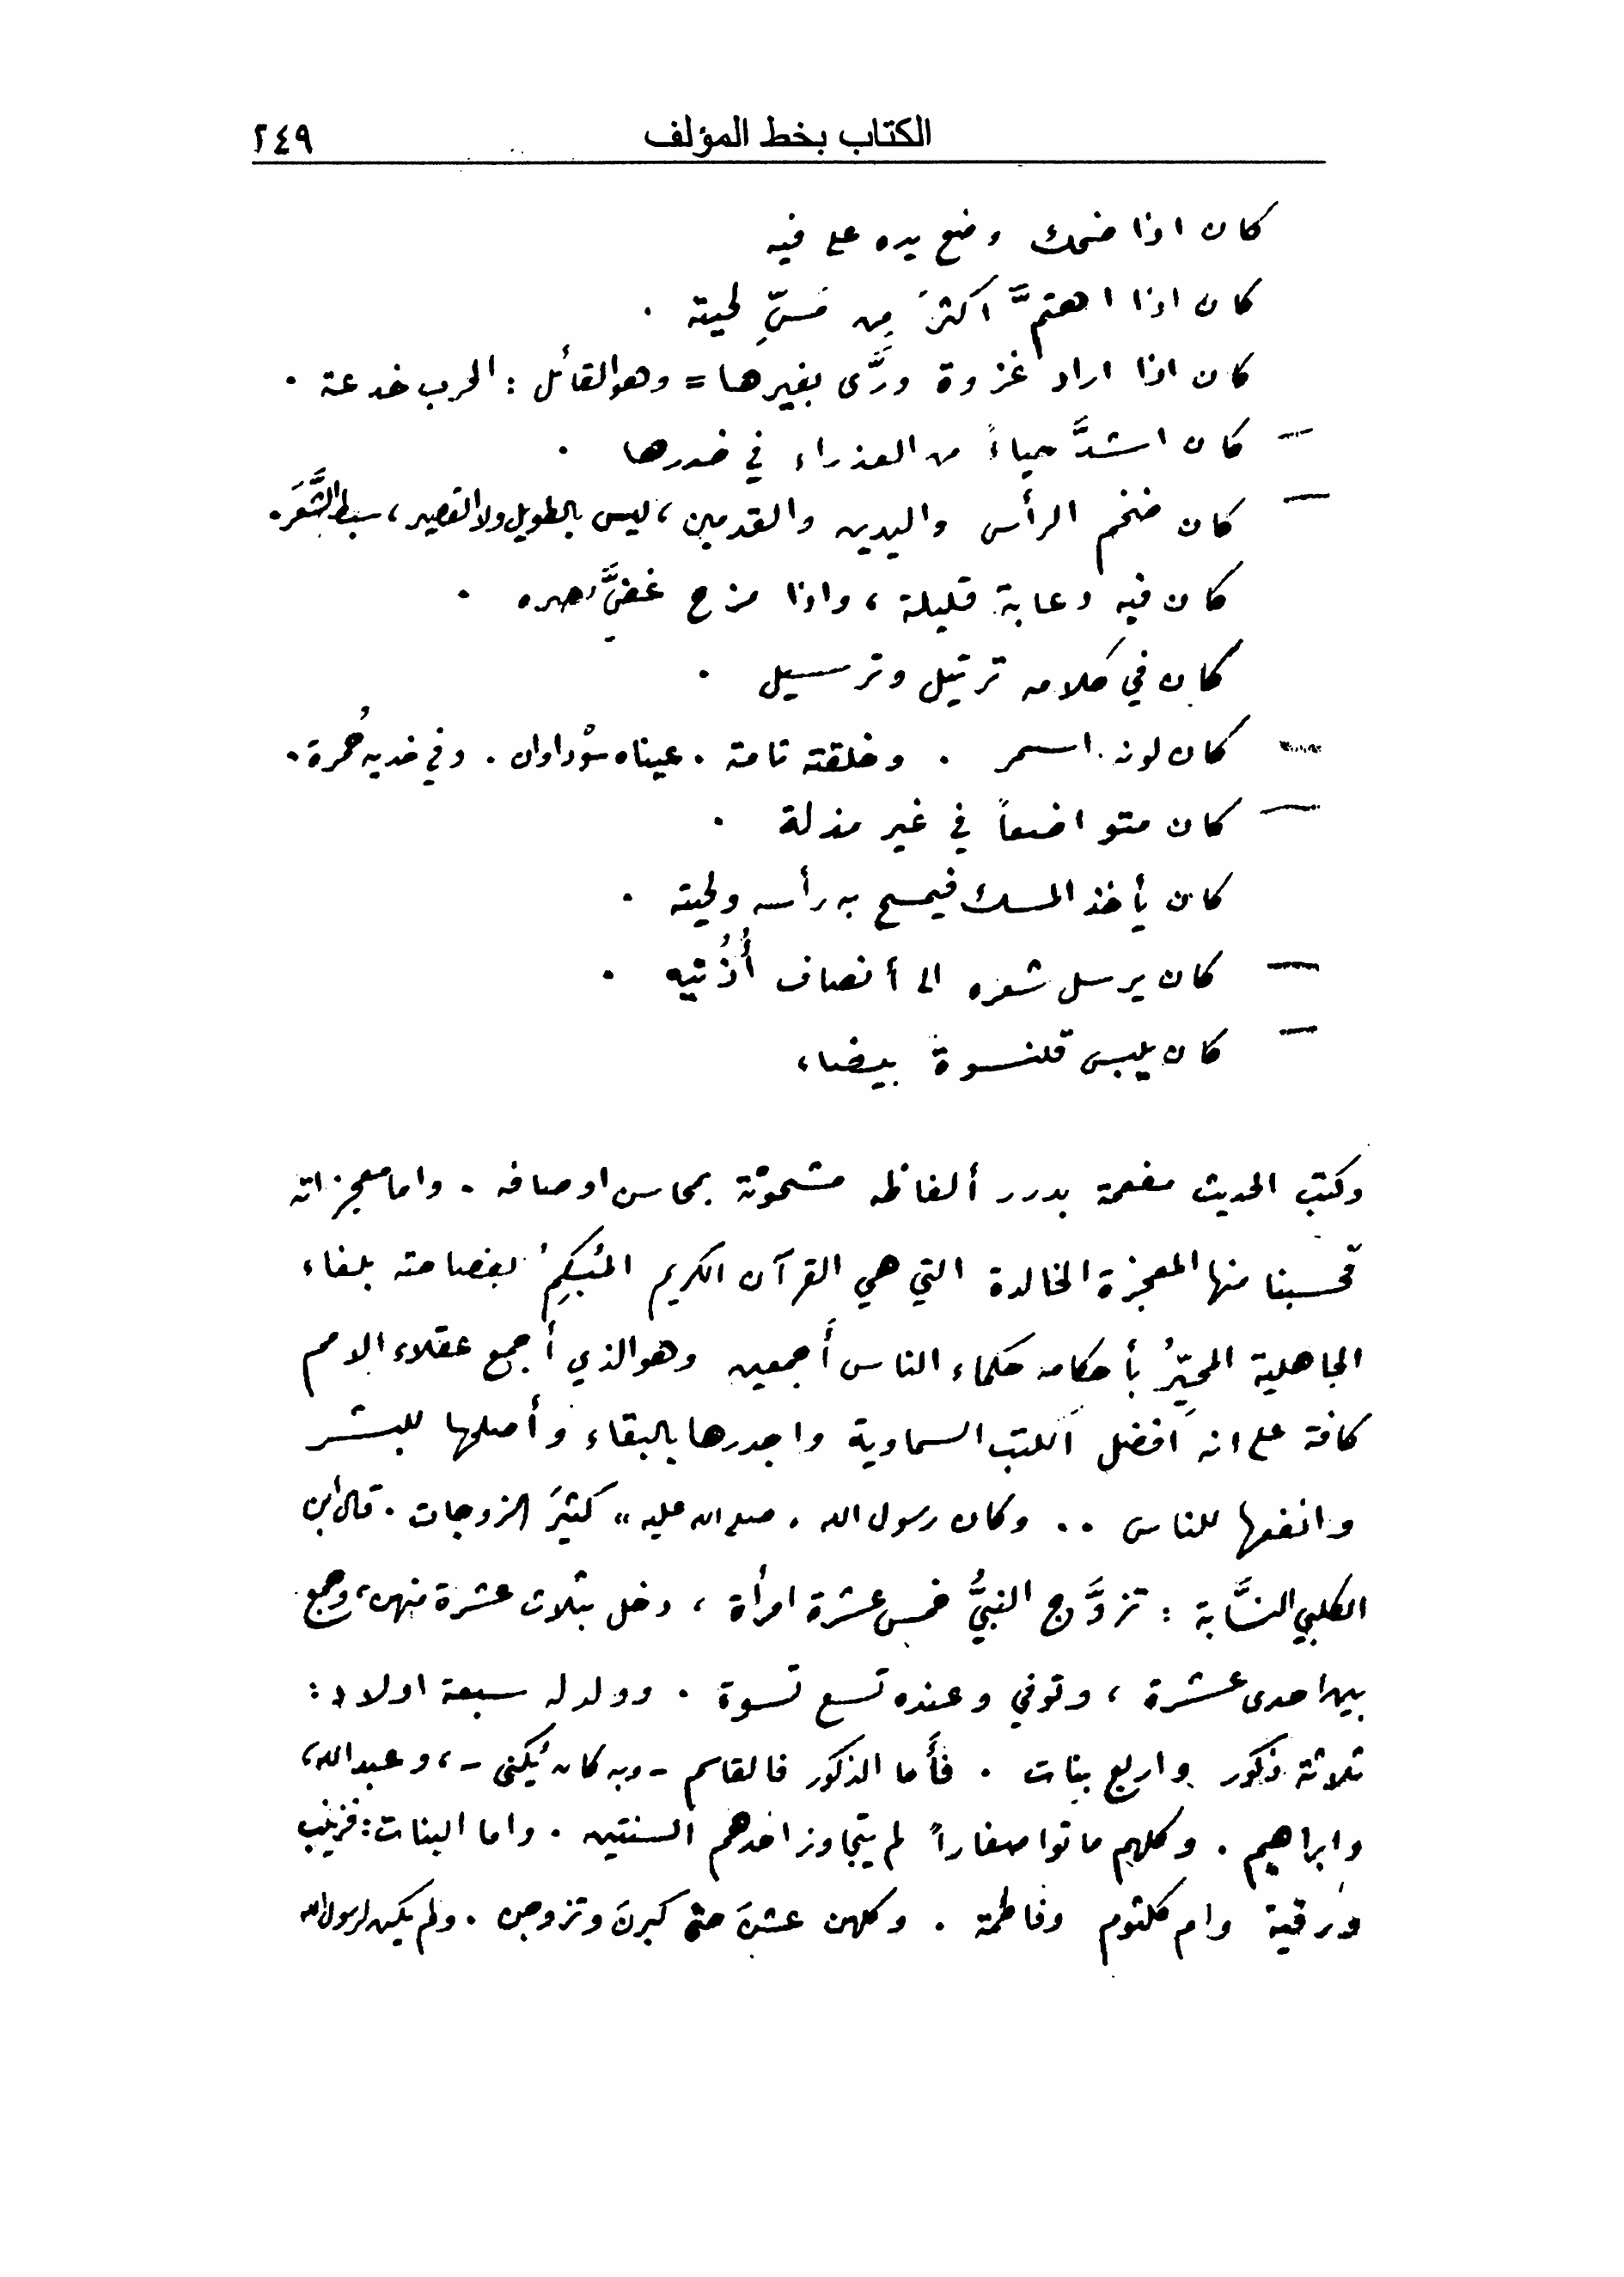 الكتاب بخط المؤلف ٢٤٩
كان اذا ضحك وضع يده على فيه
كان اذا اهتمَّ اكثرَ مِن مَسِّ لحيته .
كان اذا اراد غزوة ورَّى بغيرها = وهو القائل : الحرب خدعة .
— كان اشدَّ حياءً من العذراء في خدرها .
— كان ضخم الرأس واليدين والقدمين ، ليس بالطويل ولا القصير ، سبط الشَّعَر .
كان فيه دعابة قليلة ، واذا مزح غضَّ بصره .
كان في كلامه ترتيل وترسيل .
— كان لونه اسمر . وخلقته تامة . عيناه سوْداوان . وفي خديه حُمرة .
— كان متواضعاً في غير مذلة .
كان يأخذ المسك فيمسح به رأسه ولحيته .
— كان يرسل شعره الى أنصاف أُذُنيه .
— كان يلبس قلنسوة بيضاء
وكتب الحديث مفعمة بدرر ألفاظه مشحونة بمحاسن اوصافه . واما معجزاته
فحسبنا منها المعجزة الخالدة التي هي القرآن الكريم المُبكِمُ بفصاحته بلغاء
الجاهلية المحيِّرُ بأحكامه حكماء الناس أَجمعين وهو الذي أجمع عقلاء الامم
كافة على انه افضل الكتب السماوية واجدرها بالبقاء وأصلحها للبشر
وانفعها للناس .. وكان رسول الله ، صلى الله عليه " كثيرَ الزوجات . قال ابن
الكلبي النسَّابة : تزوَّج النبيُّ خمس عشرة امرأة ، دخل بثلاث عشرة منهن ، وجمع
بين احدى عشرة ، وتوفي وعنده تسع نسوة . وولد له سبعة اولاد :
ثلاثة ذكور واربع بنات . فأَما الذكور فالقاسم - وبه كان يُكنى - ، وعبدالله ،
وابراهيم . وكلهم ماتوا صغاراً لم يتجاوز احدهم السنتين . واما البنات : فزينب
ورقية وام كلثوم وفاطمة . وكلهن عشنَ حتى كبرنَ وتزوجن . ولم يكن لرسول الله